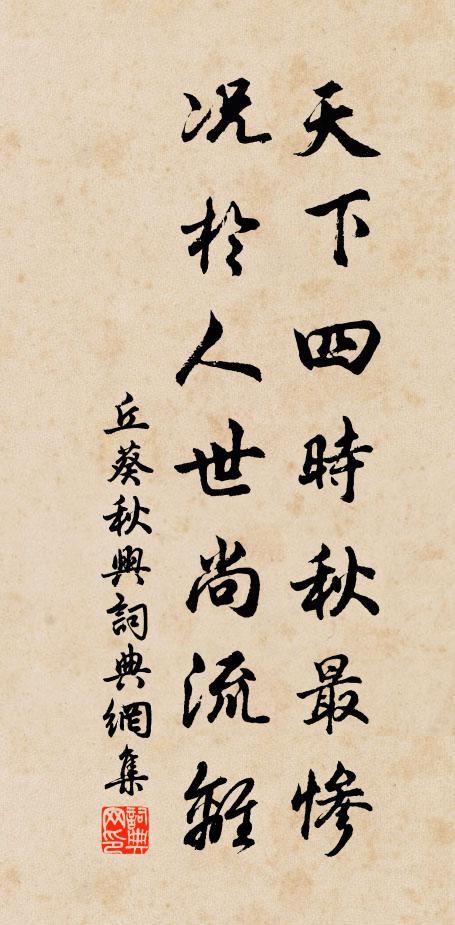 天下四時秋最慘
況於人世尚流離
丘葵秋興詞典網集
詞典網印